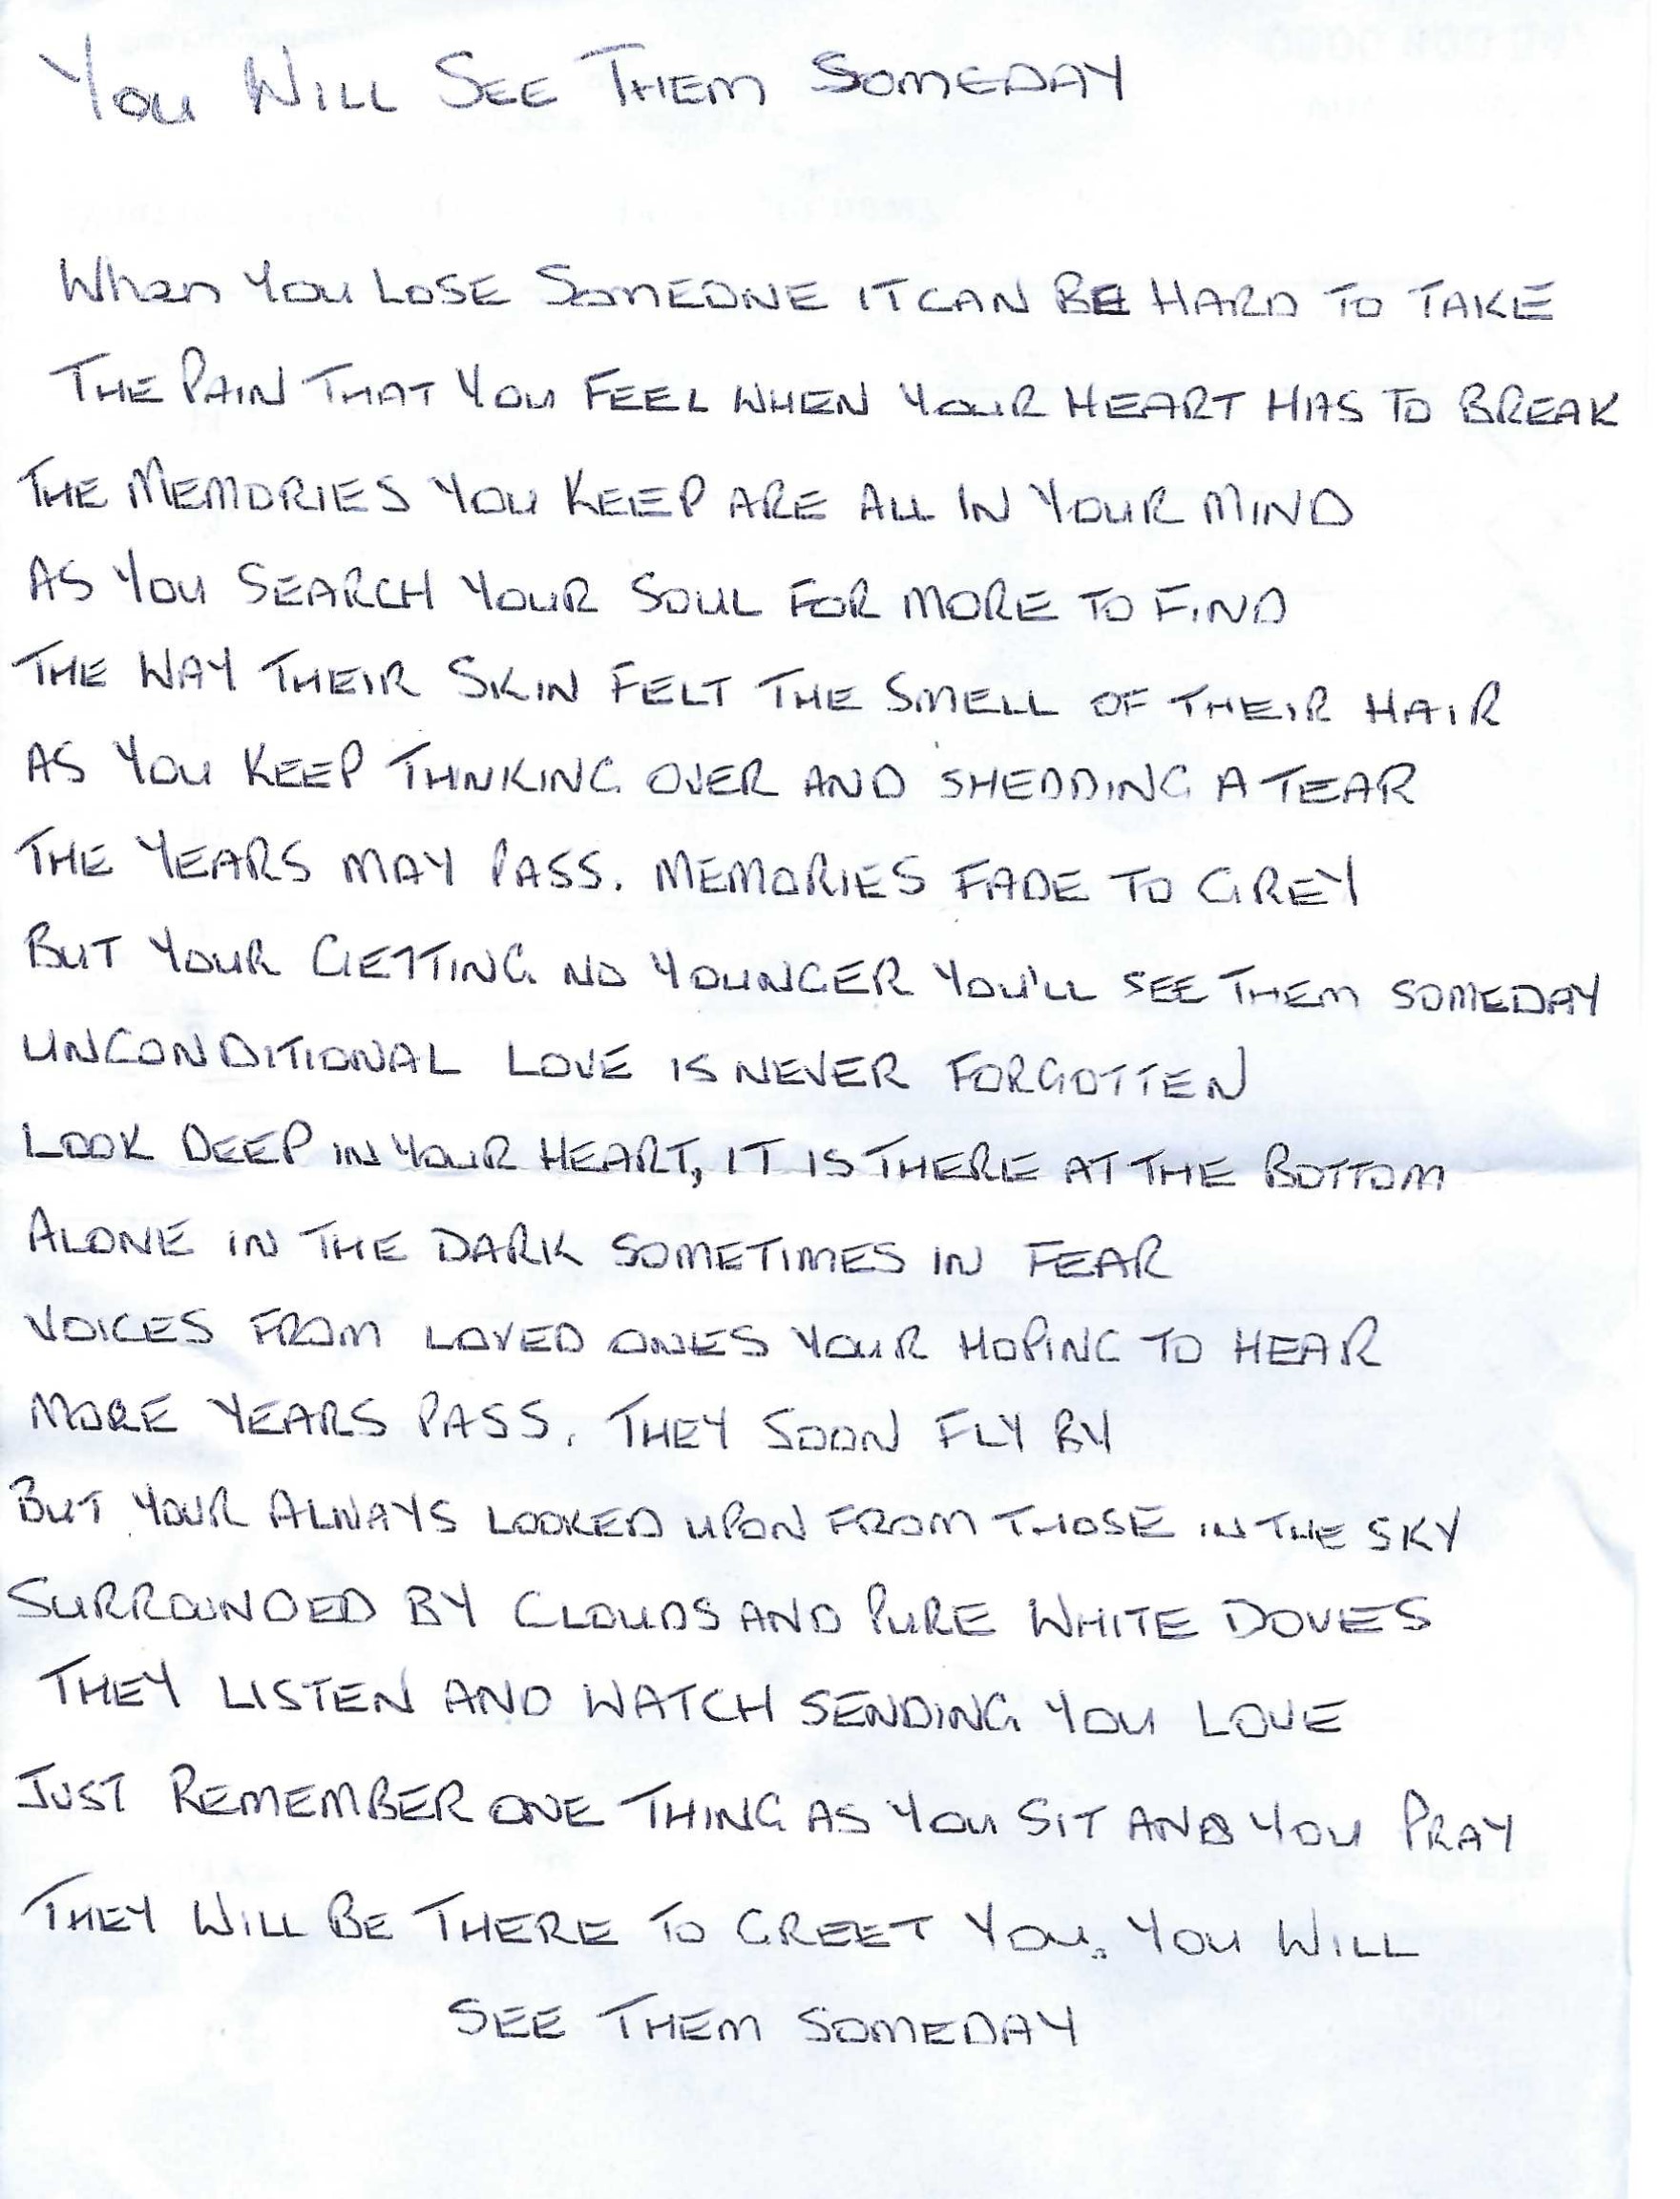 YOU WILL SEE THEM SOMEDAY
WHEN YOU LOSE SOMEONE IT CAN BE HARD TO TAKE
THE PAIN THAT YOU FEEL WHEN YOUR HEART HAS TO BREAK
THE MEMORIES YOU KEEP ARE ALL IN YOUR MIND
AS YOU SEARCH YOUR SOUL FOR MORE TO FIND
THE WAY THEIR SKIN FELT THE SMELL OF THEIR HAIR
AS YOU KEEP THNKING OVER AND SHEDDING A TEAR
THE YEARS MAY PASS. MEMORIES FADE TO GREY
BUT YOUR GETTING NO YOUNGER YOU'LL SEE THEM SOMEDAY
UNCONDITIONAL LOVE IS NEVER FORGOTTEN
LOOK DEEP IN YOUR HEART, IT IS THERE AT THE BOTTOM
ALONE IN THE DARK SOMETIMES IN FEAR
VOICES FROM LOVED ONES YOUR HOPING TO HEAR
MORE YEARS PASS. THEY SOON FLY BY
BUT YOUR ALWAYS LOOKED UPON FROM THOSE IN THE SKY
SURROUNDED BY CLOUDS AND PURE WHITE DOVES
THEY LISTEN AND WATCH SENDING YOU LOVE
JUST REMEMBER ONE THING AS YOU SIT AND YOU PRAY
THEY WILL BE THERE TO GREET YOU. YOU WILL
SEE THEM SOMEDAY